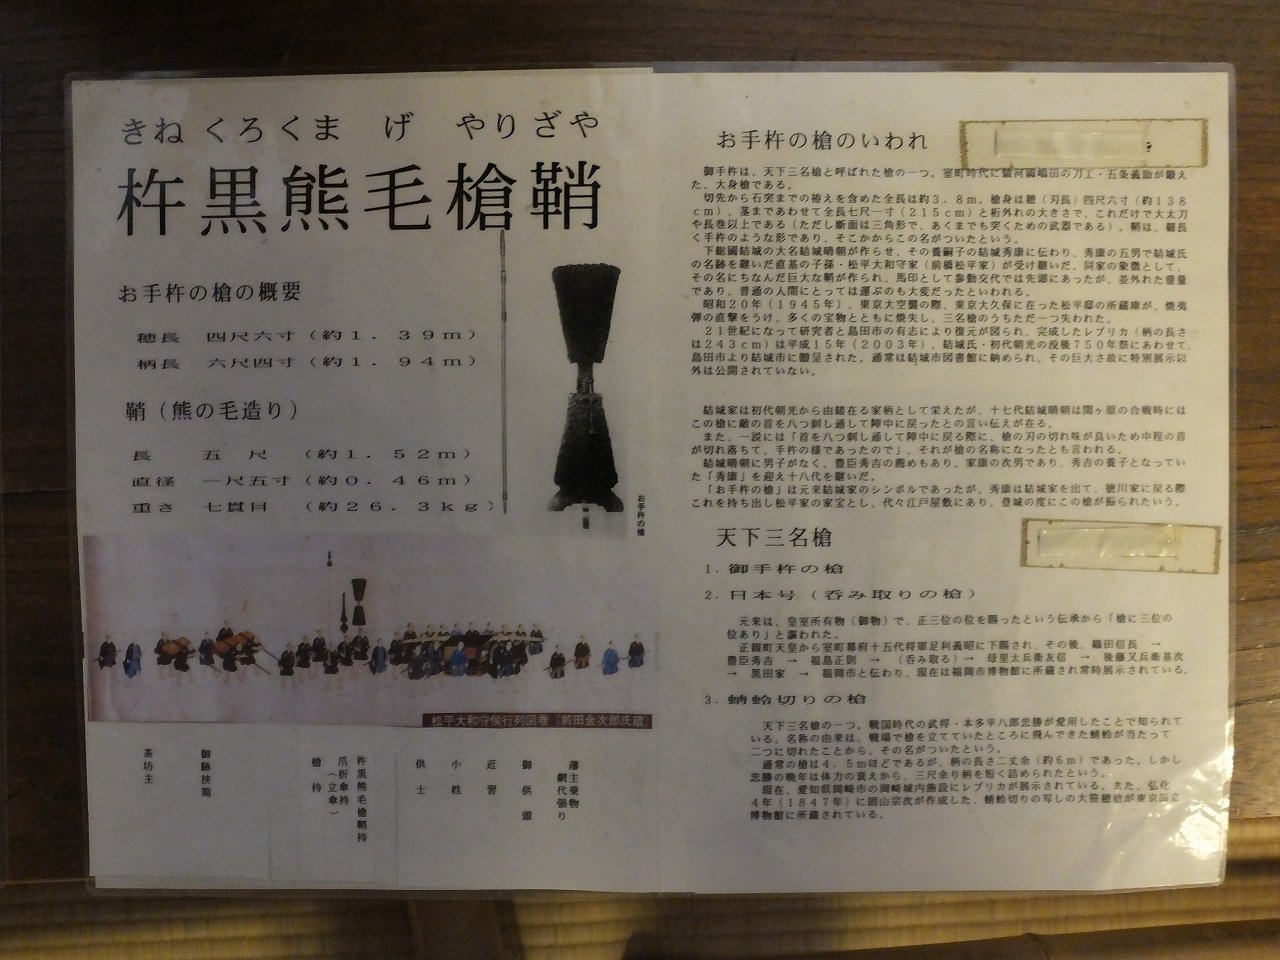 きね くろくま げ やりざや
杵黒熊毛槍鞘
お手杵の槍の概要
穂長 四尺六寸（約１．３９ｍ）
柄長 六尺四寸（約１．９４ｍ）
鞘（熊の毛造り）
長 五 尺 （約１．５２ｍ）
直径 一尺五寸（約０．４６ｍ）
重さ 七貫目 （約２６．３ｋｇ）
お手杵の槍
松平大和守侯行列図巻（前田金次郎氏蔵）
茶坊主
御跡挟箱
槍持
爪折傘持（立傘）
杵黒熊毛槍鞘持
供士
小姓
近習
御供頭
藩主乗物
網代張り
お手杵の槍のいわれ
御手杵は、天下三名槍と呼ばれた槍の一つ。室町時代に駿河國嶋田の刀工・五条義助が鍛え
た、大身槍である。
切先から石突までの拵えを含めた全長は約３．８ｍ。槍身は穂（刃長）四尺六寸（約１３８
ｃｍ）、茎まであわせて全長七尺一寸（２１５ｃｍ）と桁外れの大きさで、これだけで大太刀
や長巻以上である（ただし断面は三角形で、あくまでも突くための武器である）。鞘は、細長
く手杵のような形であり、そこからこの名がついたという。
下総國結城の大名結城晴朝が作らせ、その養嗣子の結城秀康に伝わり、秀康の五男で結城氏
の名跡を継いだ直基の子孫・松平大和守家（前橋松平家）が受け継いだ。同家の象徴として、
その名にちなんだ巨大な鞘が作られ、馬印として参勤交代では先頭にあったが、並外れた重量
であり、普通の人間にとっては運ぶのも大変だったといわれる。
昭和２０年（１９４５年）、東京大空襲の際、東京大久保に在った松平邸の所蔵庫が、焼夷
弾の直撃をうけ、多くの宝物とともに焼失し、三名槍のうちただ一つ失われた。
２１世紀になって研究者と島田市の有志により復元が図られ、完成したレプリカ（柄の長さ
は２４３ｃｍ）は平成１５年（２００３年）、結城氏・初代朝光の没後７５０年祭にあわせて、
島田市より結城市に贈呈された。通常は結城市図書館に納められ、その巨大さ故に特別展示以
外は公開されていない。
結城家は初代朝光から由緒在る家柄として栄えたが、十七代結城晴朝は関ヶ原の合戦時には
この槍に敵の首を八つ刺し通して陣中に戻ったとの言い伝えが在る。
また、一説には「首を八つ刺し通して陣中に戻る際に、槍の刃の切れ味が良いため中程の首
が切れ落ちて、手杵の様であったので」、それが槍の名称になったとも言われる。
結城晴朝に男子がなく、豊臣秀吉の薦めもあり、家康の次男であり、秀吉の養子となってい
た「秀康」を迎え十八代を継いだ。
「お手杵の槍」は元来結城家のシンボルであったが、秀康は結城家を出て、徳川家に戻る際
これを持ち出し松平家の家宝とし、代々江戸屋敷にあり、登城の度にこの槍が振られたいう。
天下三名槍
１．御手杵の槍
２．日本号（呑み取りの槍）
元来は、皇室所有物（御物）で、正三位の位を賜ったという伝承から「槍に三位の
位あり」と謳われた。
正親町天皇から室町幕府十五代将軍足利義昭に下賜され、その後、織田信長 →
豊臣秀吉 → 福島正則 → （呑み取る）→ 母里太兵衛友信 → 後藤又兵衛基次
→ 黒田家 → 福岡市と伝わり、現在は福岡市博物館に所蔵され常時展示されている。
３．蜻蛉切りの槍
天下三名槍の一つ。戦国時代の武将・本多平八郎忠勝が愛用したことで知られて
いる。名称の由来は、戦場で槍を立てていたところに飛んできた蜻蛉が当たって
二つに切れたことから、その名がついたという。
通常の槍は４．５ｍほどであるが、柄の長さ二丈余（約６ｍ）であった。しかし
忠勝の晩年は体力の衰えから、三尺余り柄を短く詰められたという。
現在、愛知県岡崎市の岡崎城内施設にレプリカが展示されている。また、弘化
４年（１８４７年）に固山宗次が作成した、蜻蛉切りの写しの大笹穂槍が東京国立
博物館に所蔵されている。